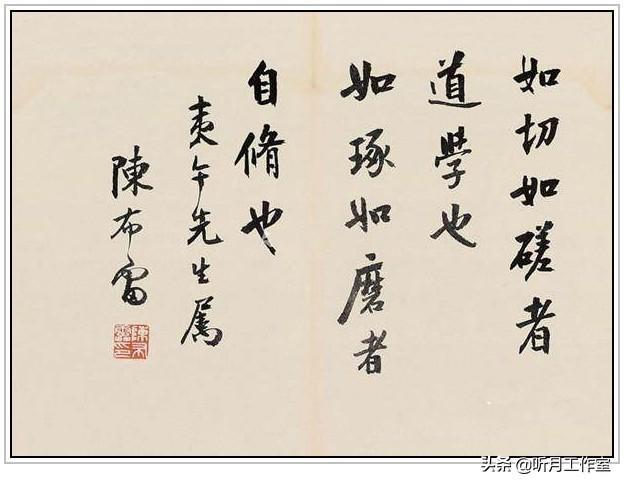 如切如磋者
道學也
如琢如磨者
自脩也
夷午先生属
陳布雷
陳布雷印
头条 @听月工作室